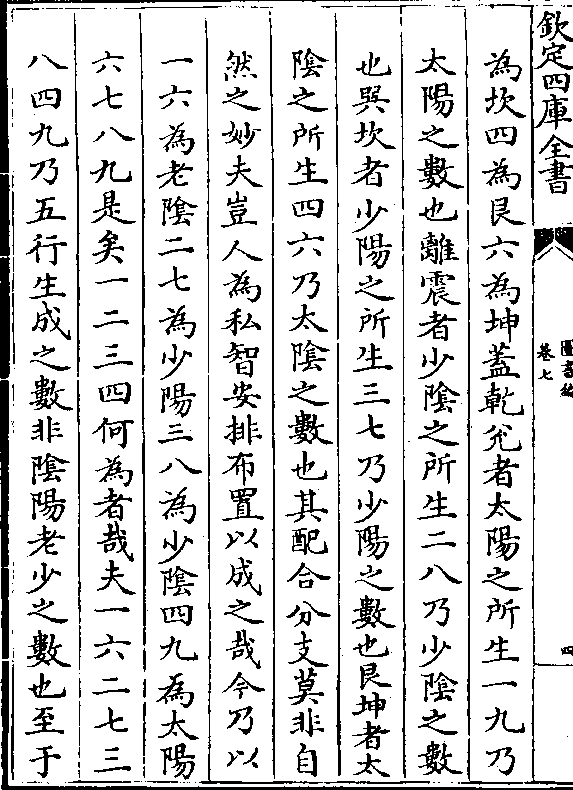 欽定四庫全書
圖書編
卷七
四
為坎四為艮六為坤蓋乾兊者太陽之所生一九乃
太陽之數也離震者少陰之所生二八乃少陰之數
也巽坎者少陽之所生三七乃少陽之數也艮坤者太
陰之所生四六乃太陰之數也其配合分支莫非自
然之妙夫豈人為私智安排布置以成之哉今乃以
一六為老陰二七為少陽三八為少陰四九為太陽
六七八九是矣一二三四何為者哉夫一六二七三
八四九乃五行生成之數非陰陽老少之數也至于